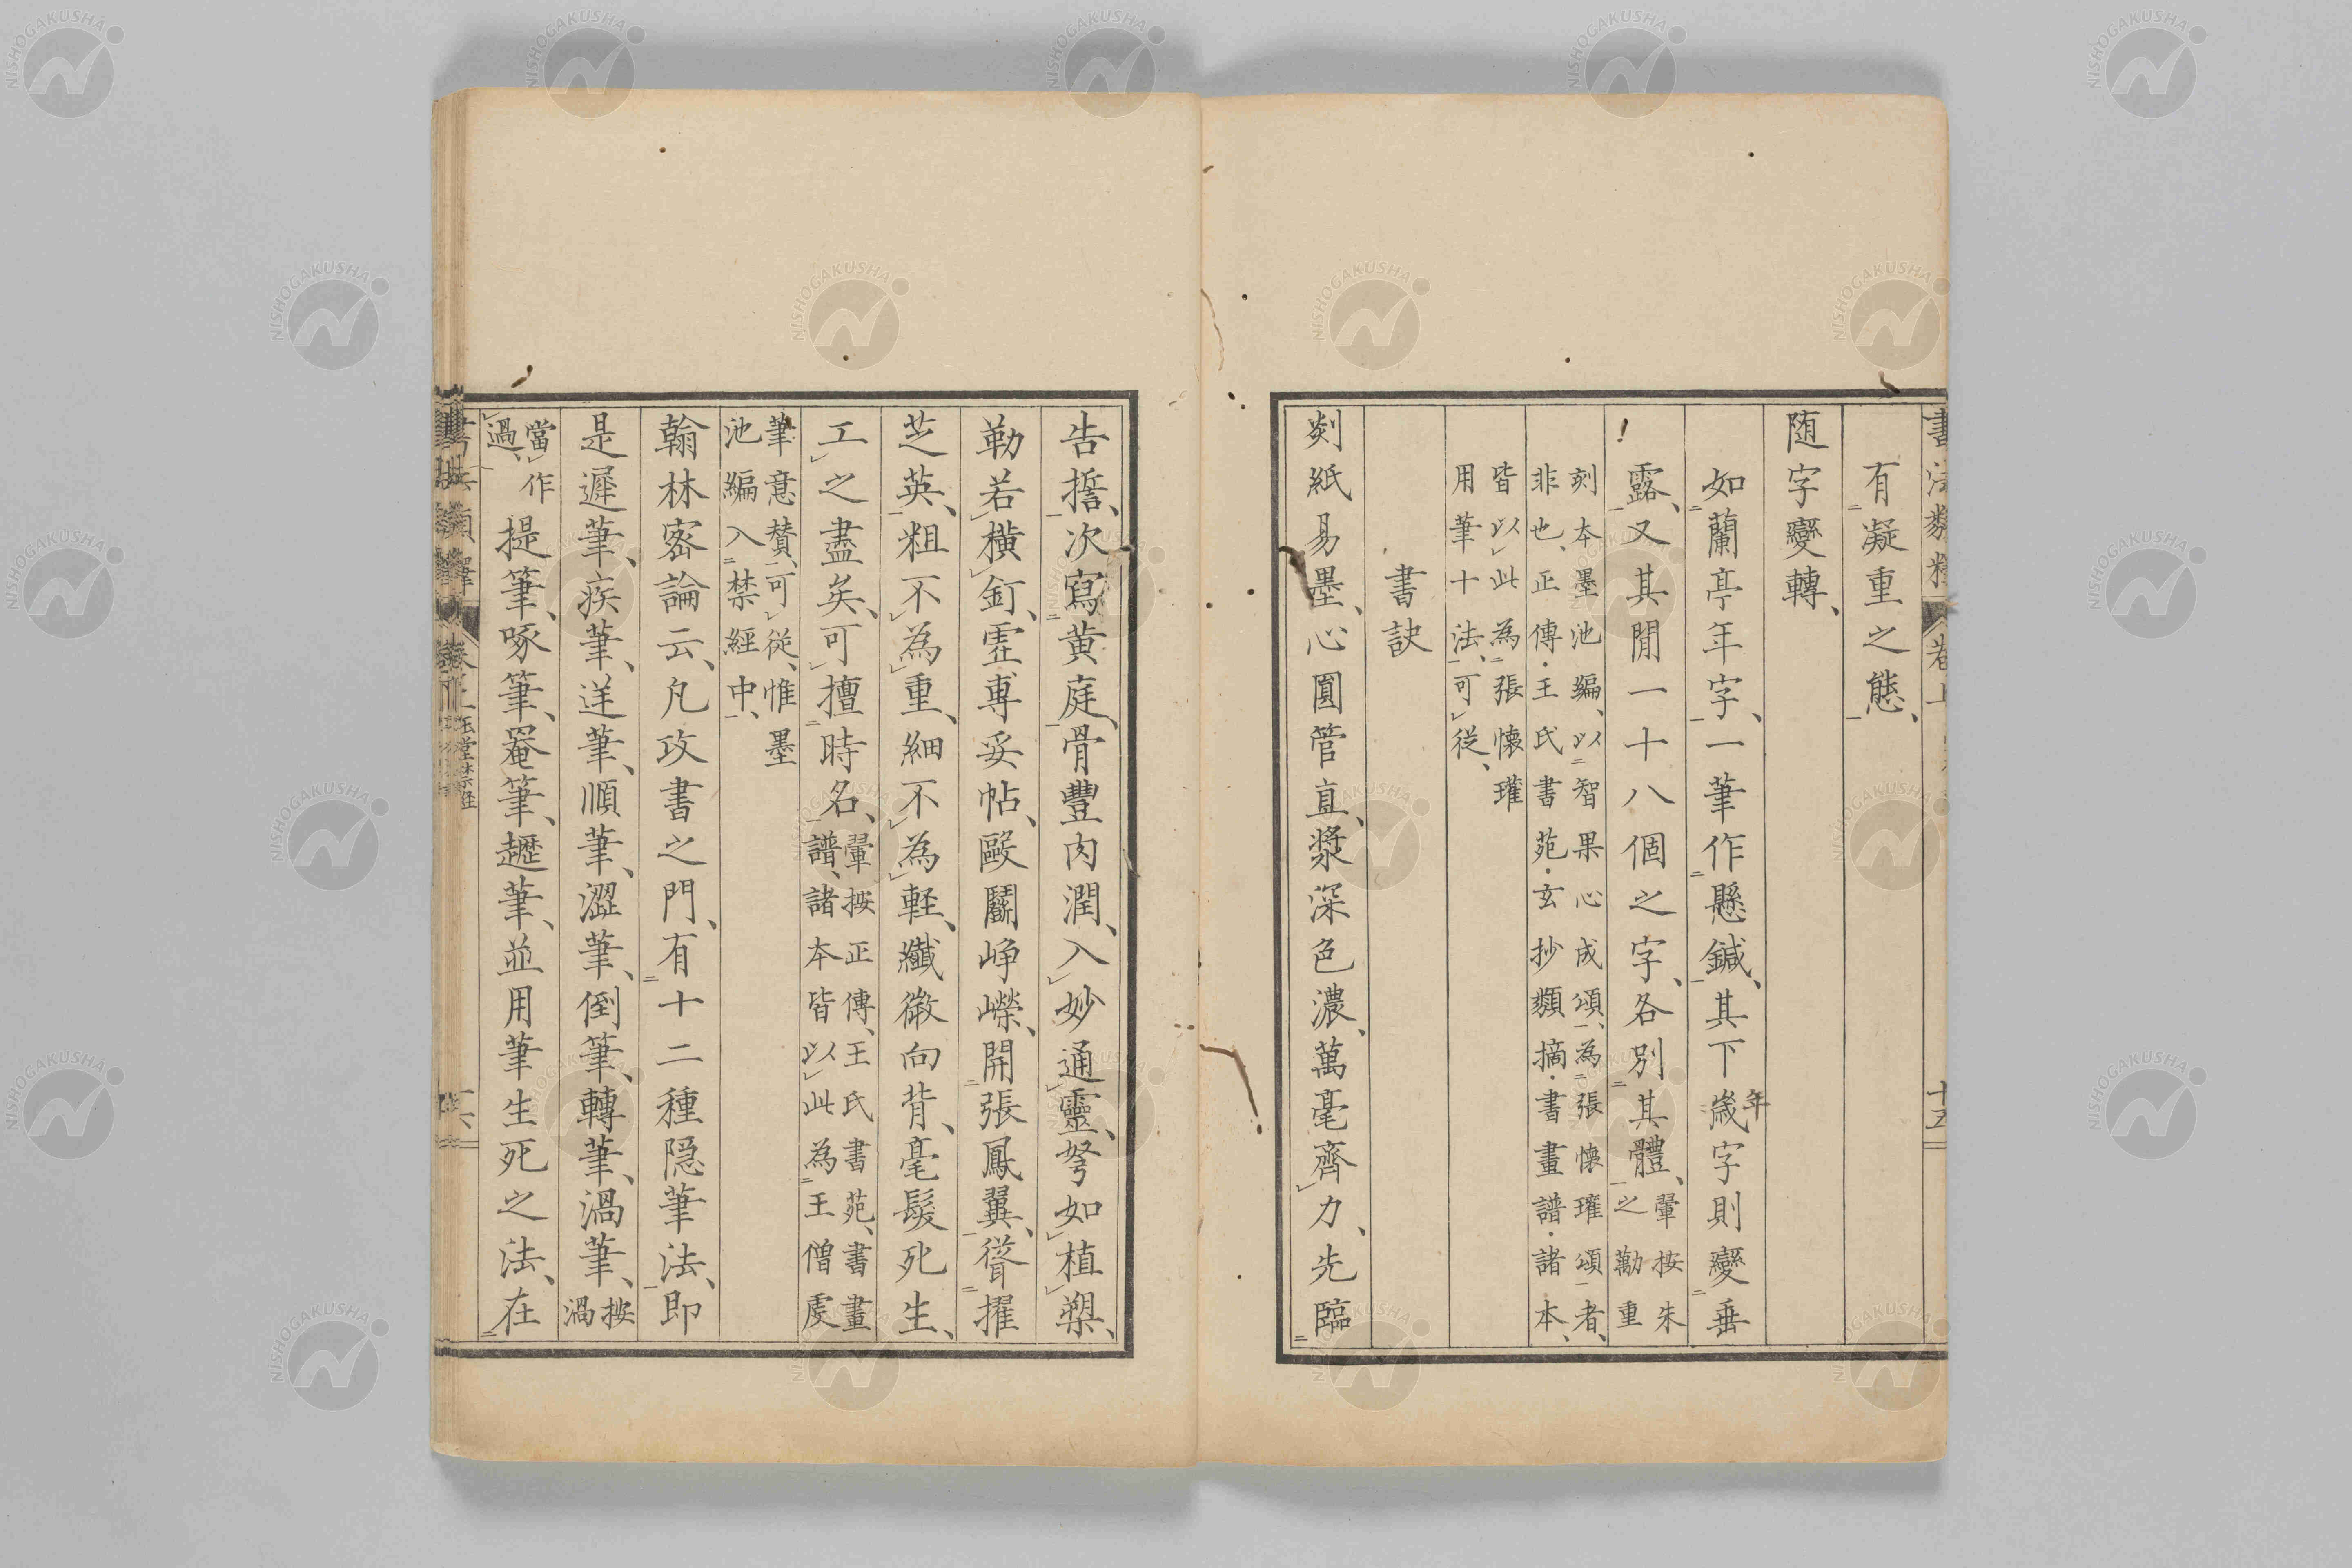 有凝重之態、
随字變轉、
如蘭亭年字、一筆作懸鍼、其下歳年字則變垂
露、又其閒一十八個之字、各別其體、翬按朱
之勸重
刻本墨池編、以智果心成頌、為張懷瓘頌者、
非也、正傳・王氏書苑・玄抄類摘・書畫譜・諸本、
皆以此為張懷瓘
用筆十法、可從、
書訣
剡紙易墨、心圓管直、漿深色濃、萬毫齊力、先臨
告誓、次寫黄庭、骨豐肉潤、入妙通靈、努如植槊、
勒若橫釘、虚專妥帖、毆鬭崢嶸、開張鳳翼、聳擢
芝英、粗不為重、細不為輕、纖微向背、毫髮死生、
工之盡矣、可擅時名、翬按正傳、王氏書苑、書畫
譜、諸本皆以此為王僧虔
筆意贊、可從、惟墨
池編入禁經中、
翰林密論云、凡攻書之門、有十二種隠筆法、即
是遲筆、疾筆、逆筆、順筆、澀筆、倒筆、轉筆、渦筆、按渦
當作過、提筆、啄筆、罨筆、趯筆、並用筆生死之法、在